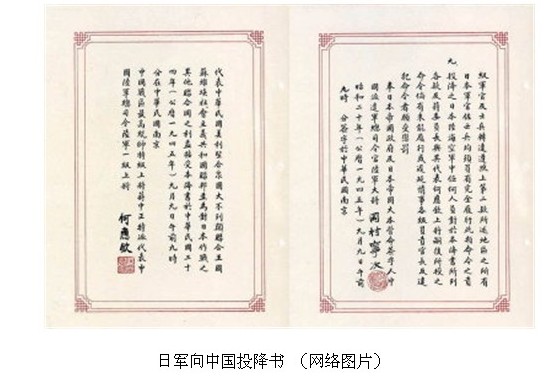 級軍官及士兵轉達遵照上第二款所述地區之所有
日本軍官佐士兵均須負有完全履行此類命令之責
九、投降之日本陸海空軍中任何人員對於本降書所列
各款及蔣委員長與其代表何應欽上將嗣後所授之
命令倘有未能履行或遲延情事各級負責官長及違
犯命令者願受懲罰
奉日本帝國政府及日本帝國大本營命簽字人中
國派遣軍總司令官陸軍大將 岡村寧次
昭和二十年(公曆一九四五年)九月九日午前
九時 分簽字於中華民國南京
代表中華民國美利堅合眾國大不列顛聯合王國
蘇維埃社會主義共和國聯邦並為對日本作戰之
其他聯合國之利益接受本降書於中華民國三十
四年(公曆一九四五年)九月九日午前九時
分在中華民國南京
中國戰區最高統帥特級上將蔣中正特派代表中
國陸軍總司令陸軍一級上將 何應欽
日军向中国投降书 (网络图片)